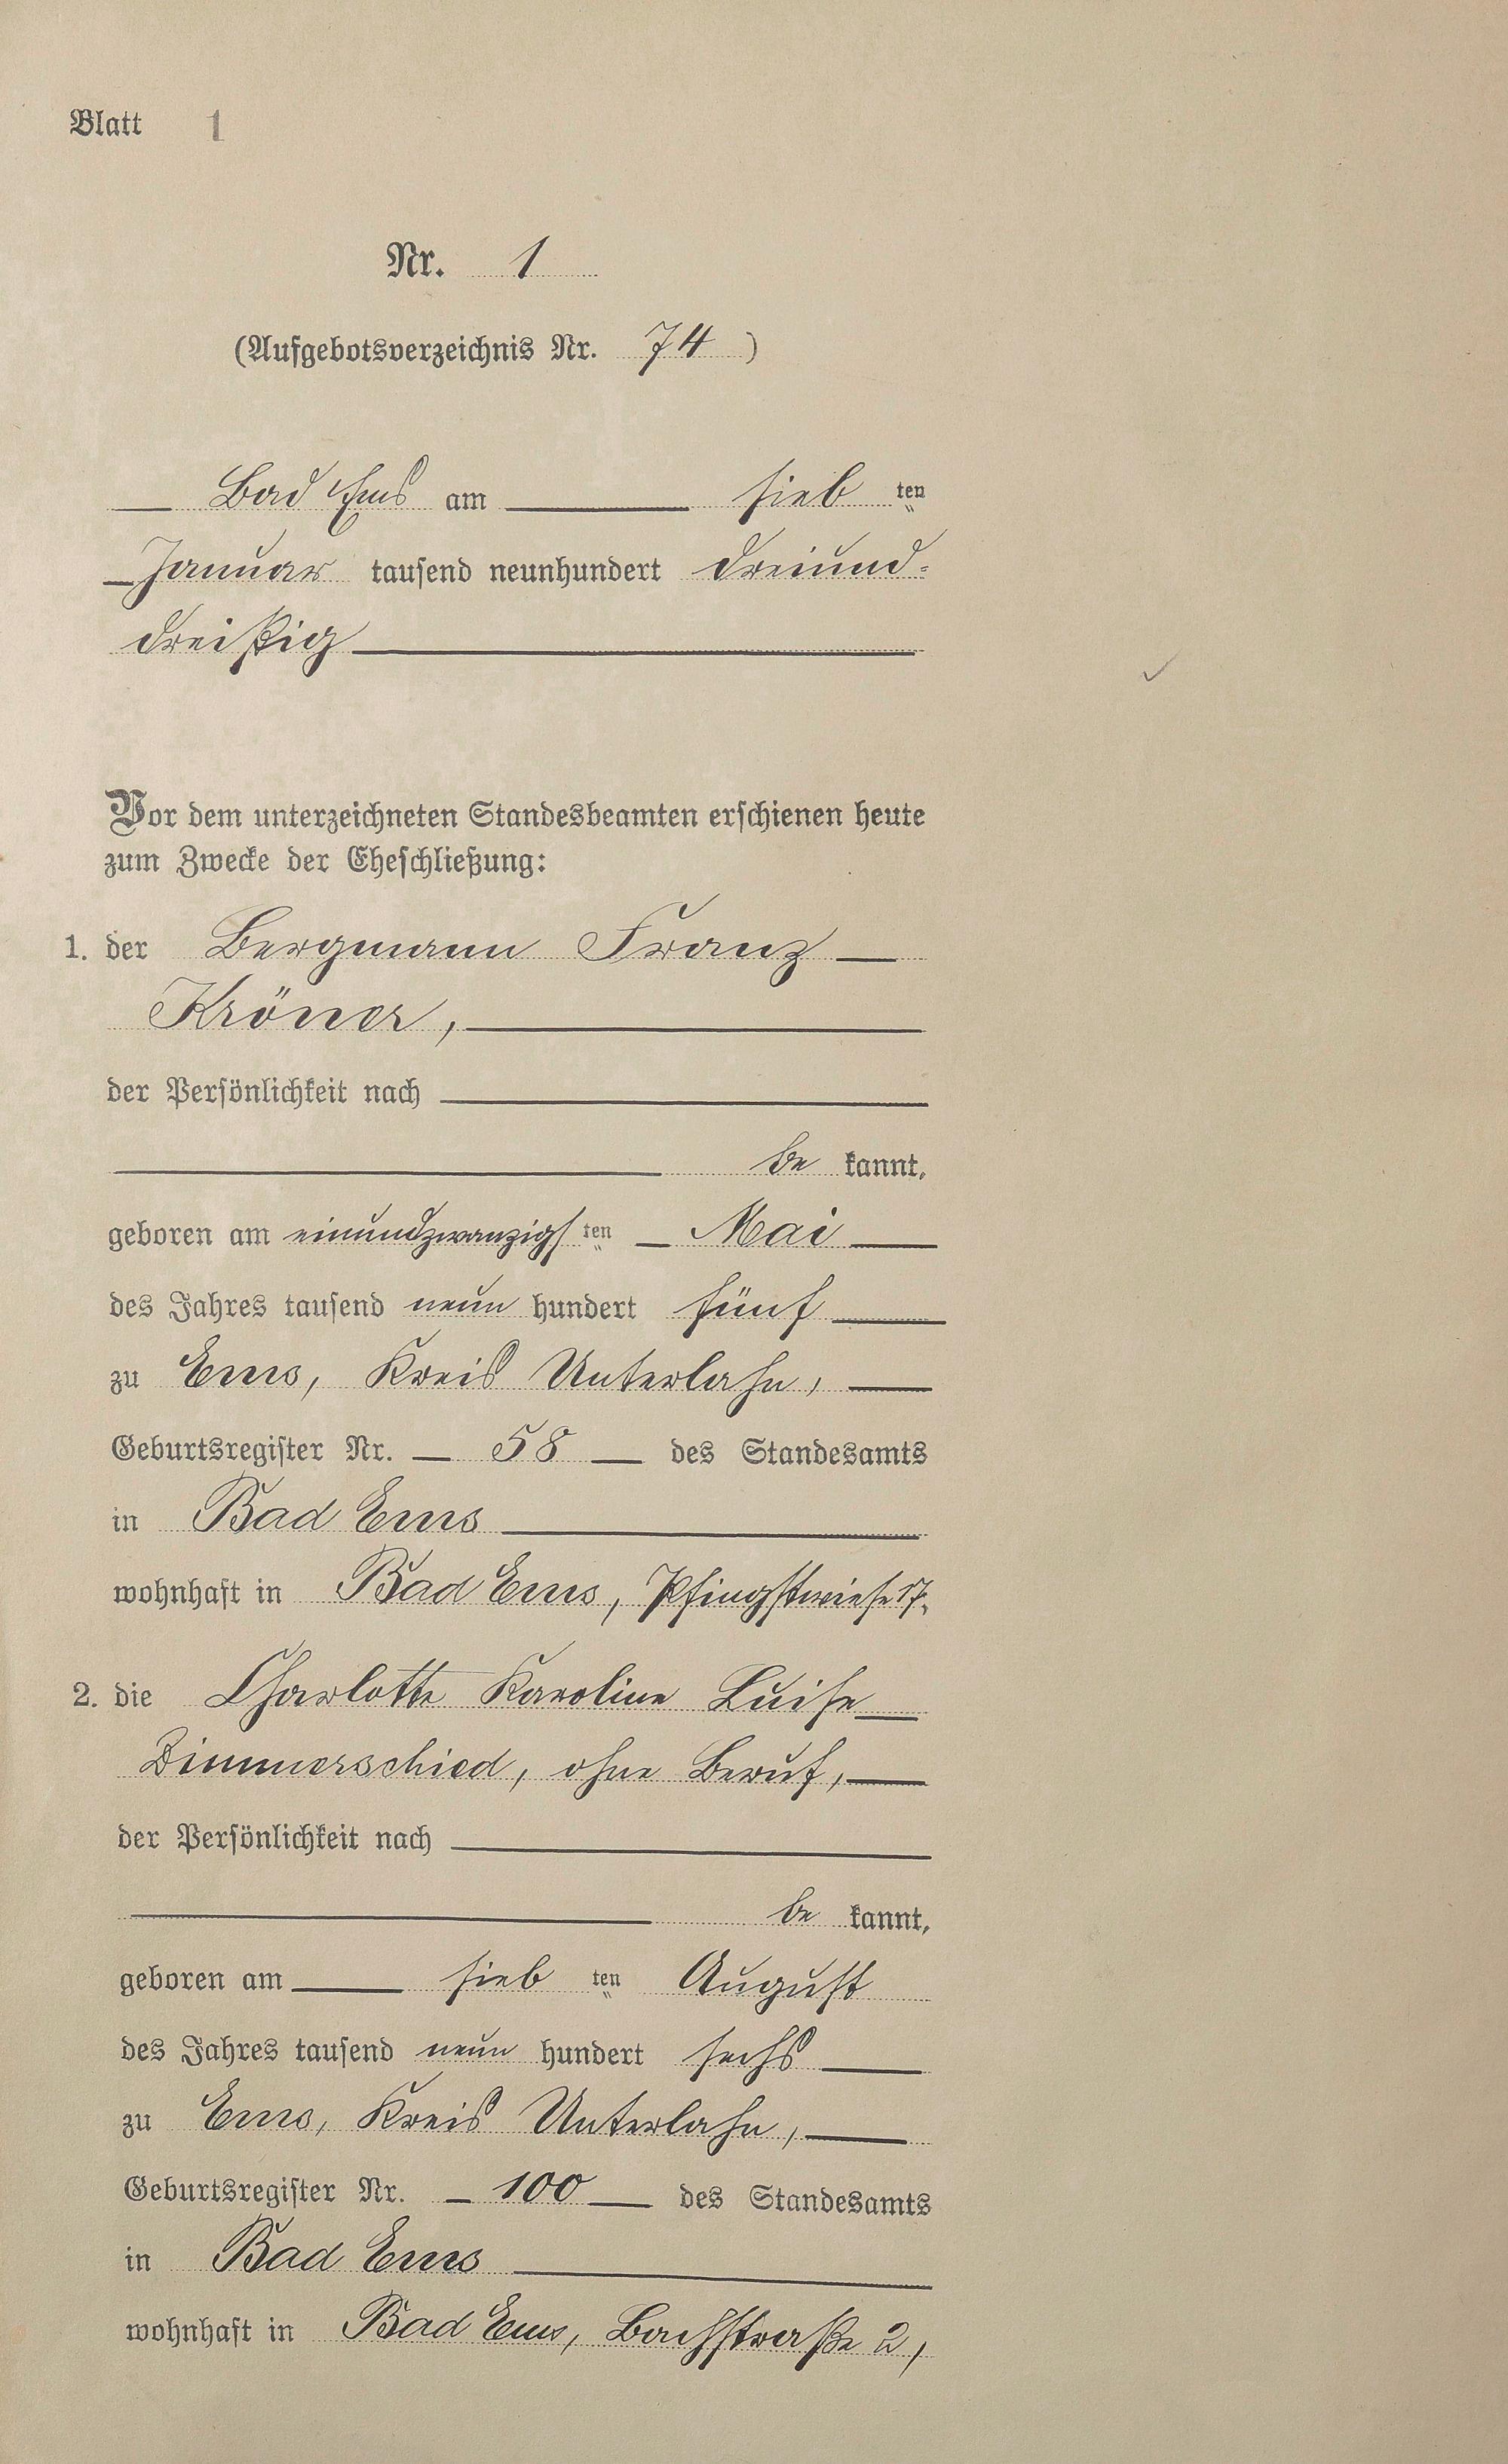 Blatt 1
Nr. 1
(Aufgebotsverzeichnis Nr. 74)
Bad Ems am sieb ten
Januar tausend neunhundert dreiund-
dreißig
Vor dem unterzeichneten Standesbeamten erschienen heute
zum Zwecke der Eheschließung:
1. der Bergmann Franz
Kröner,
der Persönlichkeit nach
be kannt,
geboren am einundzwanzigs ten Mai
des Jahres tausend neun hundert fünf
zu Ems, Kreis Unterlahn,
Geburtsregister Nr. 58 des Standesamts
in Bad Ems
wohnhaft in Bad Ems, Pfingstwiese 17,
2. die Charlotte Karoline Luise
Zimmerschied, ohne Beruf,
der Persönlichkeit nach
be kannt,
geboren am sieb ten August
des Jahres tausend neun hundert sechs
zu Ems, Kreis Unterlahn,
Geburtsregister Nr. 100 des Standesamts
in Bad Ems
wohnhaft in Bad Ems, Bachstraße 2,